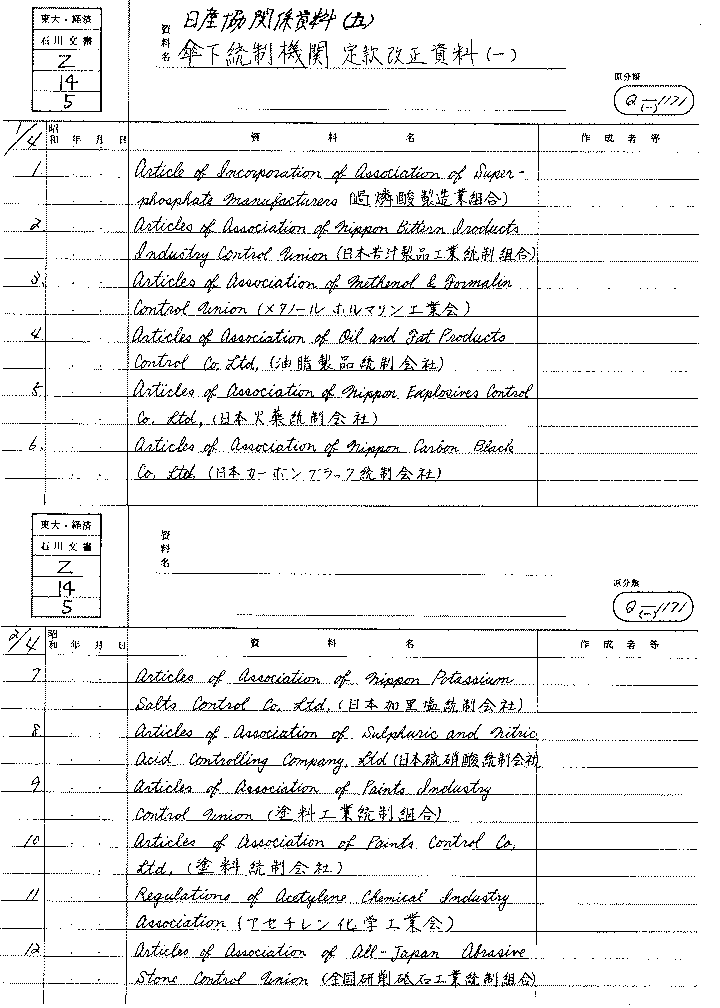 東大・経済
石川文書
Z
14
5
資料名
日産協関係資料(五)
傘下統制機関 定款改正資料(一)
原分類
Q(一)171
1/4
昭和 年 月 日
資 料 名
作成者等
1 Article of Incorporation of Association of Super-
phosphate Manufacturers (過燐酸製造業組合)
2 Articles of Association of Nippon Bittern Products
Industry Control Union (日本苦汁製品工業統制組合)
3. Articles of Association of Methenol & Formalin
Control Union (メタノールホルマリン工業会)
4 Articles of Association of Oil and Fat Products
Control Co. Ltd, (油脂製品統制会社)
5 Articles of Association of Nippon Explosives Control
Co. Ltd, (日本火薬統制会社)
6. Articles of Association of Nippon Carbon Black
Co. Ltd. (日本カーボンブラック統制会社)
東大・経済
石川文書
Z
14
5
資料名
原分類
Q(一)171
2/4
昭和 年 月 日
資 料 名
作成者等
7 Articles of Association of Nippon Potassium
Salts Control Co. Ltd. (日本加里塩統制会社)
8 Articles of Association of Sulphuric and Nitric
Acid Controlling Company, Ltd (日本硫硝酸統制会社)
9 Articles of Association of Paints Industry
Control Union (塗料工業統制組合)
10 Articles of Association of Paints Control Co.
Ltd, (塗料統制会社)
11 Regulations of Acetylene Chemical Industry
Association (アセチレン化学工業会)
12 Articles of Association of All-Japan Abrasive
Stone Control Union (全国研削砥石工業統制組合)